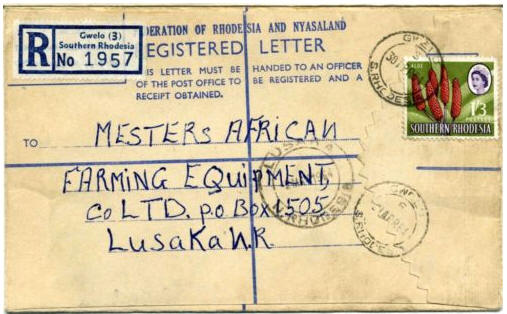 R
Gwelo (3)
Southern Rhodesia
No 1957
FEDERATION OF RHODESIA AND NYASALAND
REGISTERED LETTER
THIS LETTER MUST BE HANDED TO AN OFFICER
OF THE POST OFFICE TO BE REGISTERED AND A
RECEIPT OBTAINED.
GWELO
S. RHODESIA
ALOE
1/3
POSTAGE
SOUTHERN RHODESIA
TO
MESTERS AFRICAN
FARMING EQUIPMENT,
Co LTD. P.O Box 1505
LUSAKA N.R.
LUSAKA
N. RHODESIA
GWELO
S. RHODESIA